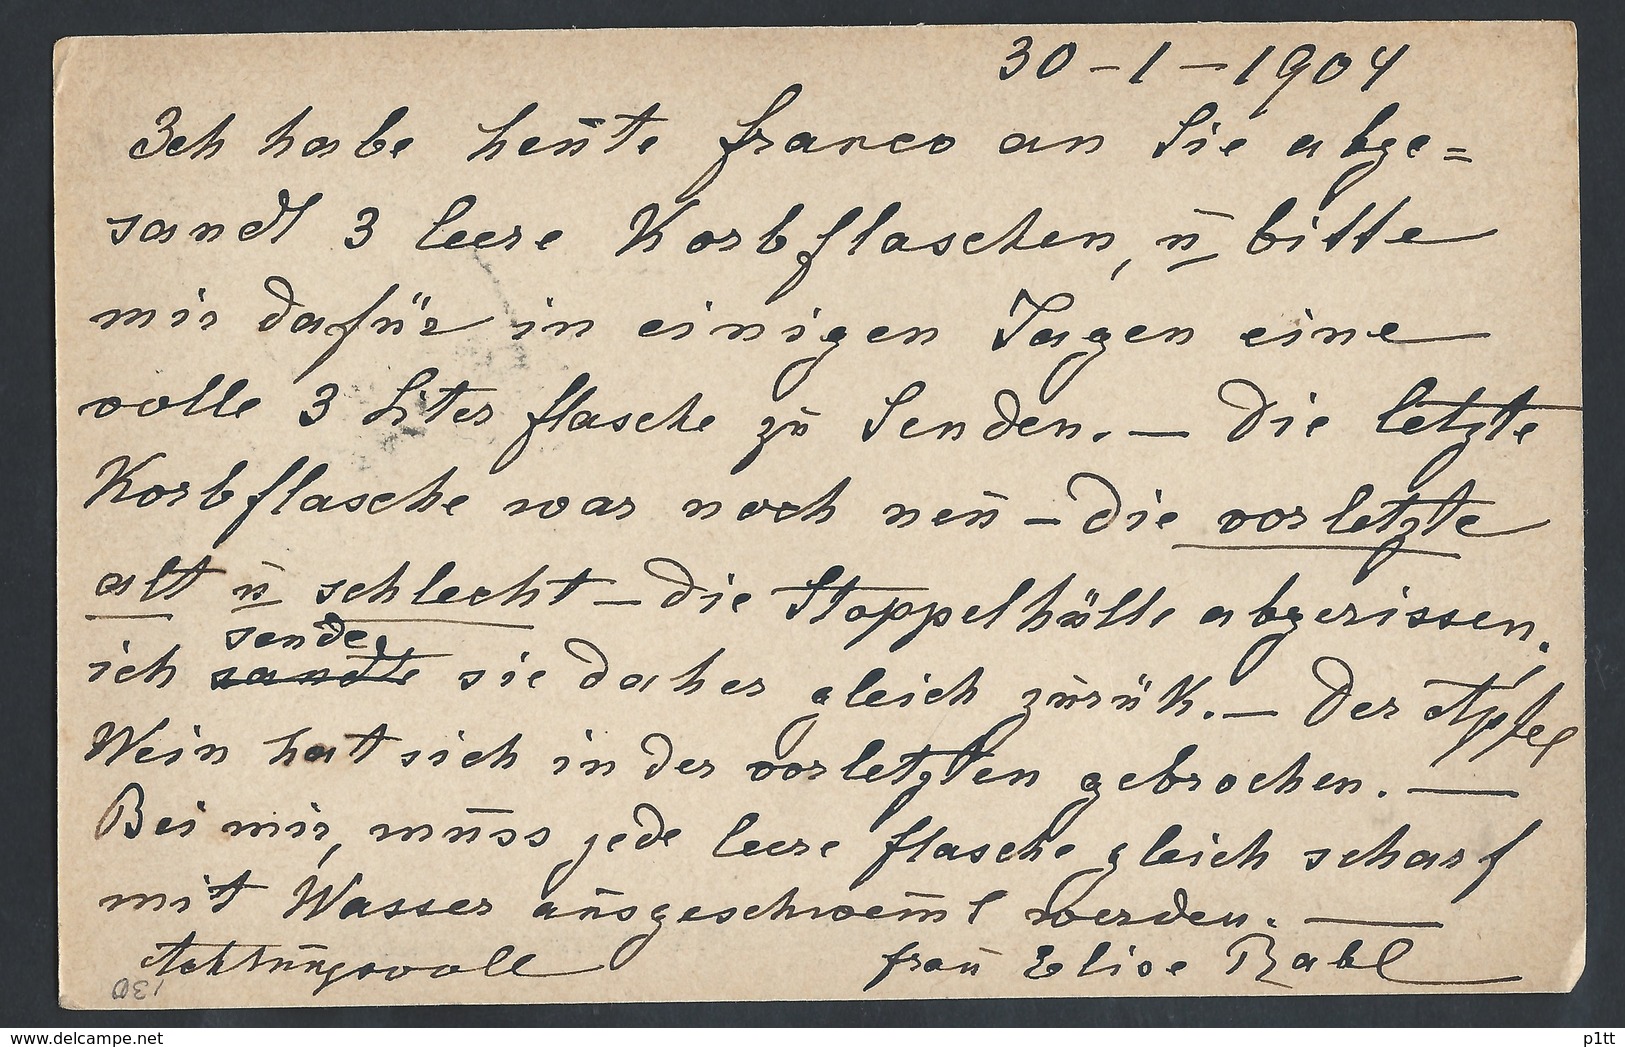 30 – 1 – 1904
Ich habe heute franco an Sie abge=
sandt 3 leere Korbflaschen, u bitte
mir dafür in einigen Tagen eine
volle 3 Liter flasche zu Senden. – Die letzte
Korbflasche war noch neu – die vorletzte
alt u schlecht – die Stoppelhülle abgerissen,
sende
ich sandte sie daher gleich zurück. – Der Apfel
Wein hat sich in der vorletzten gebrochen. —
Bei mir, muss jede leere flasche gleich scharf
mit Wasser ausgeschwemt werden. —
Achtungsvoll frau Elise Rabl
130
© www.delcampe.net
p1tt